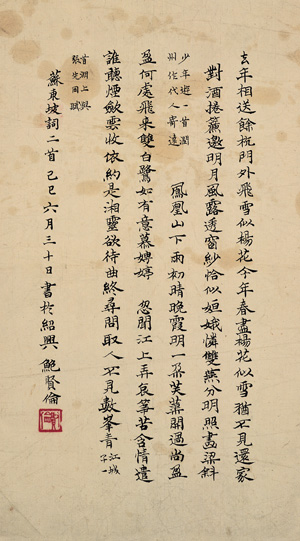 去年相送餘杭門外飛雪似楊花今年春盡楊花似雪猶不見還家
對酒捲簾邀明月風露透窗紗恰似姮娥憐雙燕分明照畫梁斜
少年遊一首潤
州作代人寄遠
鳳凰山下雨初晴晚霞明一朵芙蓉開過尚盈
盈何處飛來雙白鷺如有意慕娉婷 忽聞江上弄哀箏苦含情遣
誰聽煙斂雲收依約是湘靈欲待曲終尋問取人不見數峯青 江城
子一
首湖上與
張先同賦
蘇東坡詞二首 己巳六月三十日書於紹興 鮑賢倫